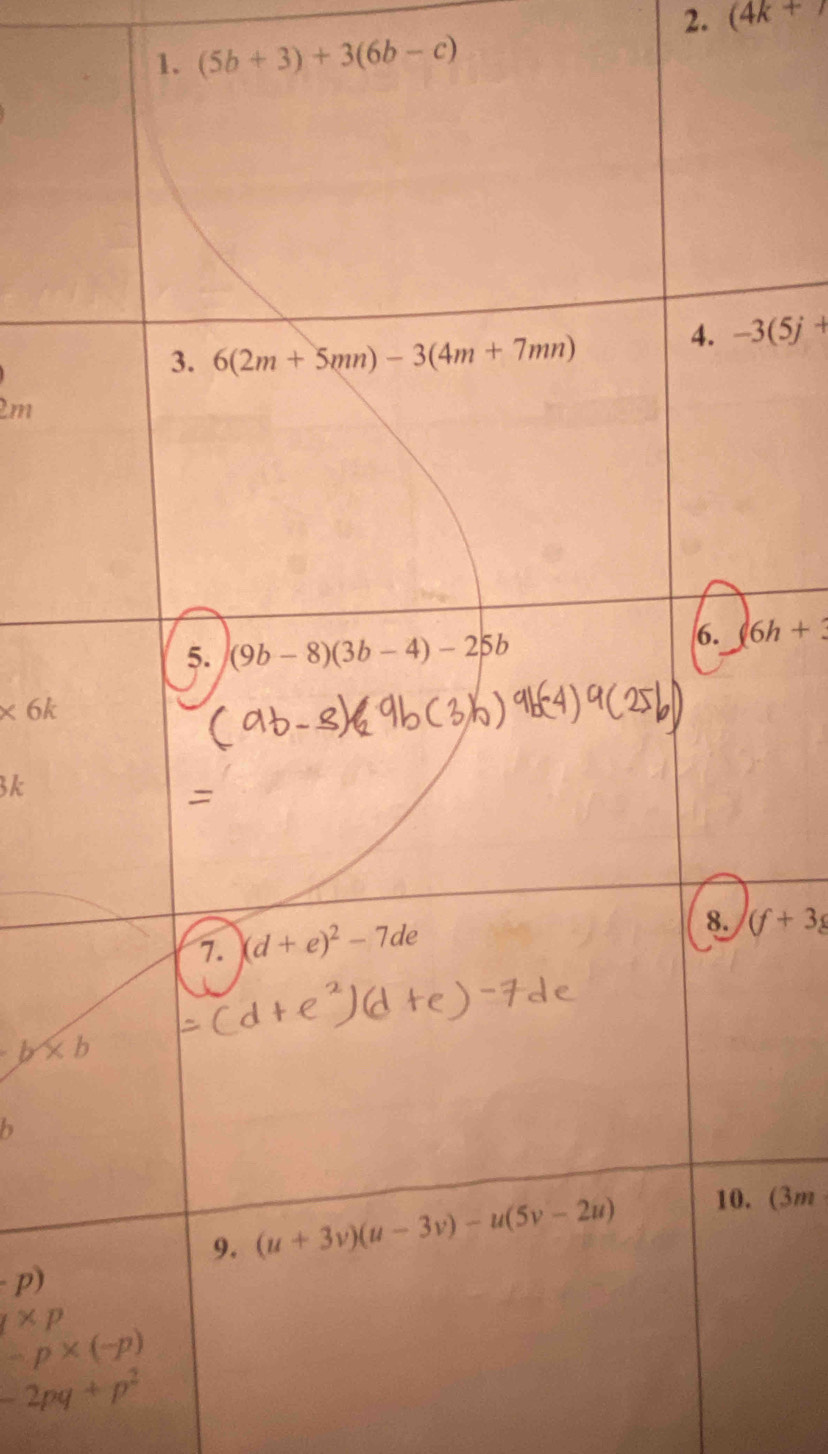 1. (5b + 3) + 3(6b − c)
2. (4k +
3. 6(2m + 5mn) − 3(4m + 7mn)
4. −3(5j +
2m
5. (9b − 8)(3b − 4) − 25b
6. (6h + 3
× 6k
(9b-8)( 9b(3b) 9b(-4) 9(25b)
3k
=
7. (d + e)² − 7de
8. (f + 3g
= (d + e²)(d + e) -7de
b × b
b
9. (u + 3v)(u − 3v) − u(5v − 2u)
10. (3m
p)
× p
− p × (−p)
− 2pq + p²